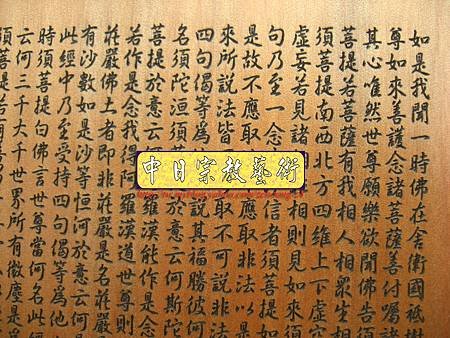 如是我聞一時佛在舍衛國祇樹
尊如來善護念諸菩薩善付囑諸
其心唯然世尊願樂欲聞佛告須
菩提若菩薩有我相人相眾生相
須菩提南西北方四維上下虛空
虛妄若見諸相則見如來
句乃至一念信者須菩提
是故不應取取非法以是
來所說法皆取不可說非法
四句偈等為說其福勝彼
名須陀洹須菩於意云何斯陀
菩提於意云何羅漢能作是念
若作是念我得羅漢道世尊則
莊嚴佛土者即非莊嚴
有沙數如是沙等恒河於意云何
此經中乃至受持四句偈等為他
時須菩提白佛言世尊當何名此經
云何三千大千世界所有微塵是
須菩提若
中日宗教藝術